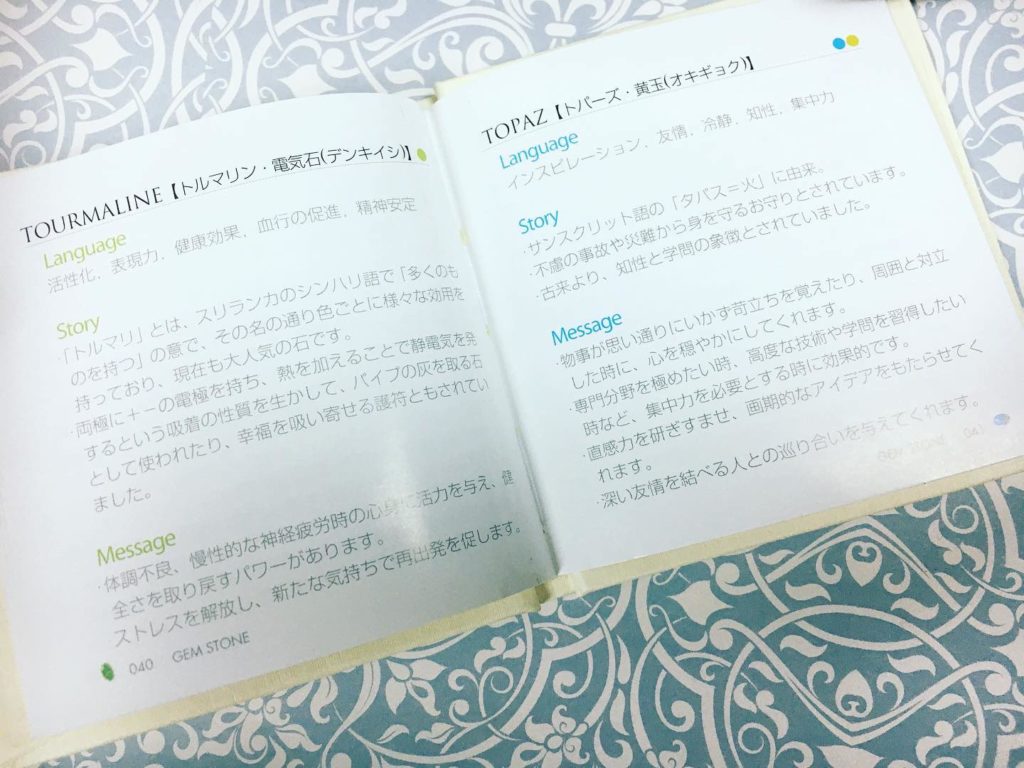 TOURMALINE【トルマリン・電気石(デンキイシ)】
Language
活性化、表現力、健康効果、血行の促進、精神安定
Story
・「トルマリ」とは、スリランカのシンハリ語で「多くのも
のを持つ」の意で、その名の通り色ごとに様々な効用を
持っており、現在も大人気の石です。
・両極に+−の電極を持ち、熱を加えることで静電気を発
するという吸着の性質を生かして、パイプの灰を取る石
として使われたり、幸福を吸い寄せる護符ともされてい
ました。
Message
・体調不良、慢性的な神経疲労時の心身に活力を与え、健
全さを取り戻すパワーがあります。
ストレスを解放し、新たな気持ちで再出発を促します。
040 GEM STONE
TOPAZ【トパーズ・黄玉(オキギョク)】
Language
インスピレーション、友情、冷静、知性、集中力
Story
・サンスクリット語の「タパス=火」に由来。
・不慮の事故や災難から身を守るお守りとされています。
・古来より、知性と学問の象徴とされていました。
Message
・物事が思い通りにいかず苛立ちを覚えたり、周囲と対立
した時に、心を穏やかにしてくれます。
・専門分野を極めたい時、高度な技術や学問を習得したい
時など、集中力を必要とする時に効果的です。
・直感力を研ぎすませ、画期的なアイデアをもたらせてく
れます。
・深い友情を結べる人との巡り合いを与えてくれます。
GEM STONE 041